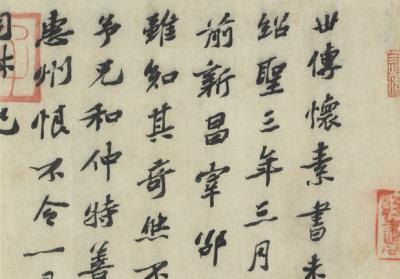 世傳懷素書未
紹聖三年三月
前新昌宰邵
雖知其奇然不
予兄和仲特善
惠州恨不令一